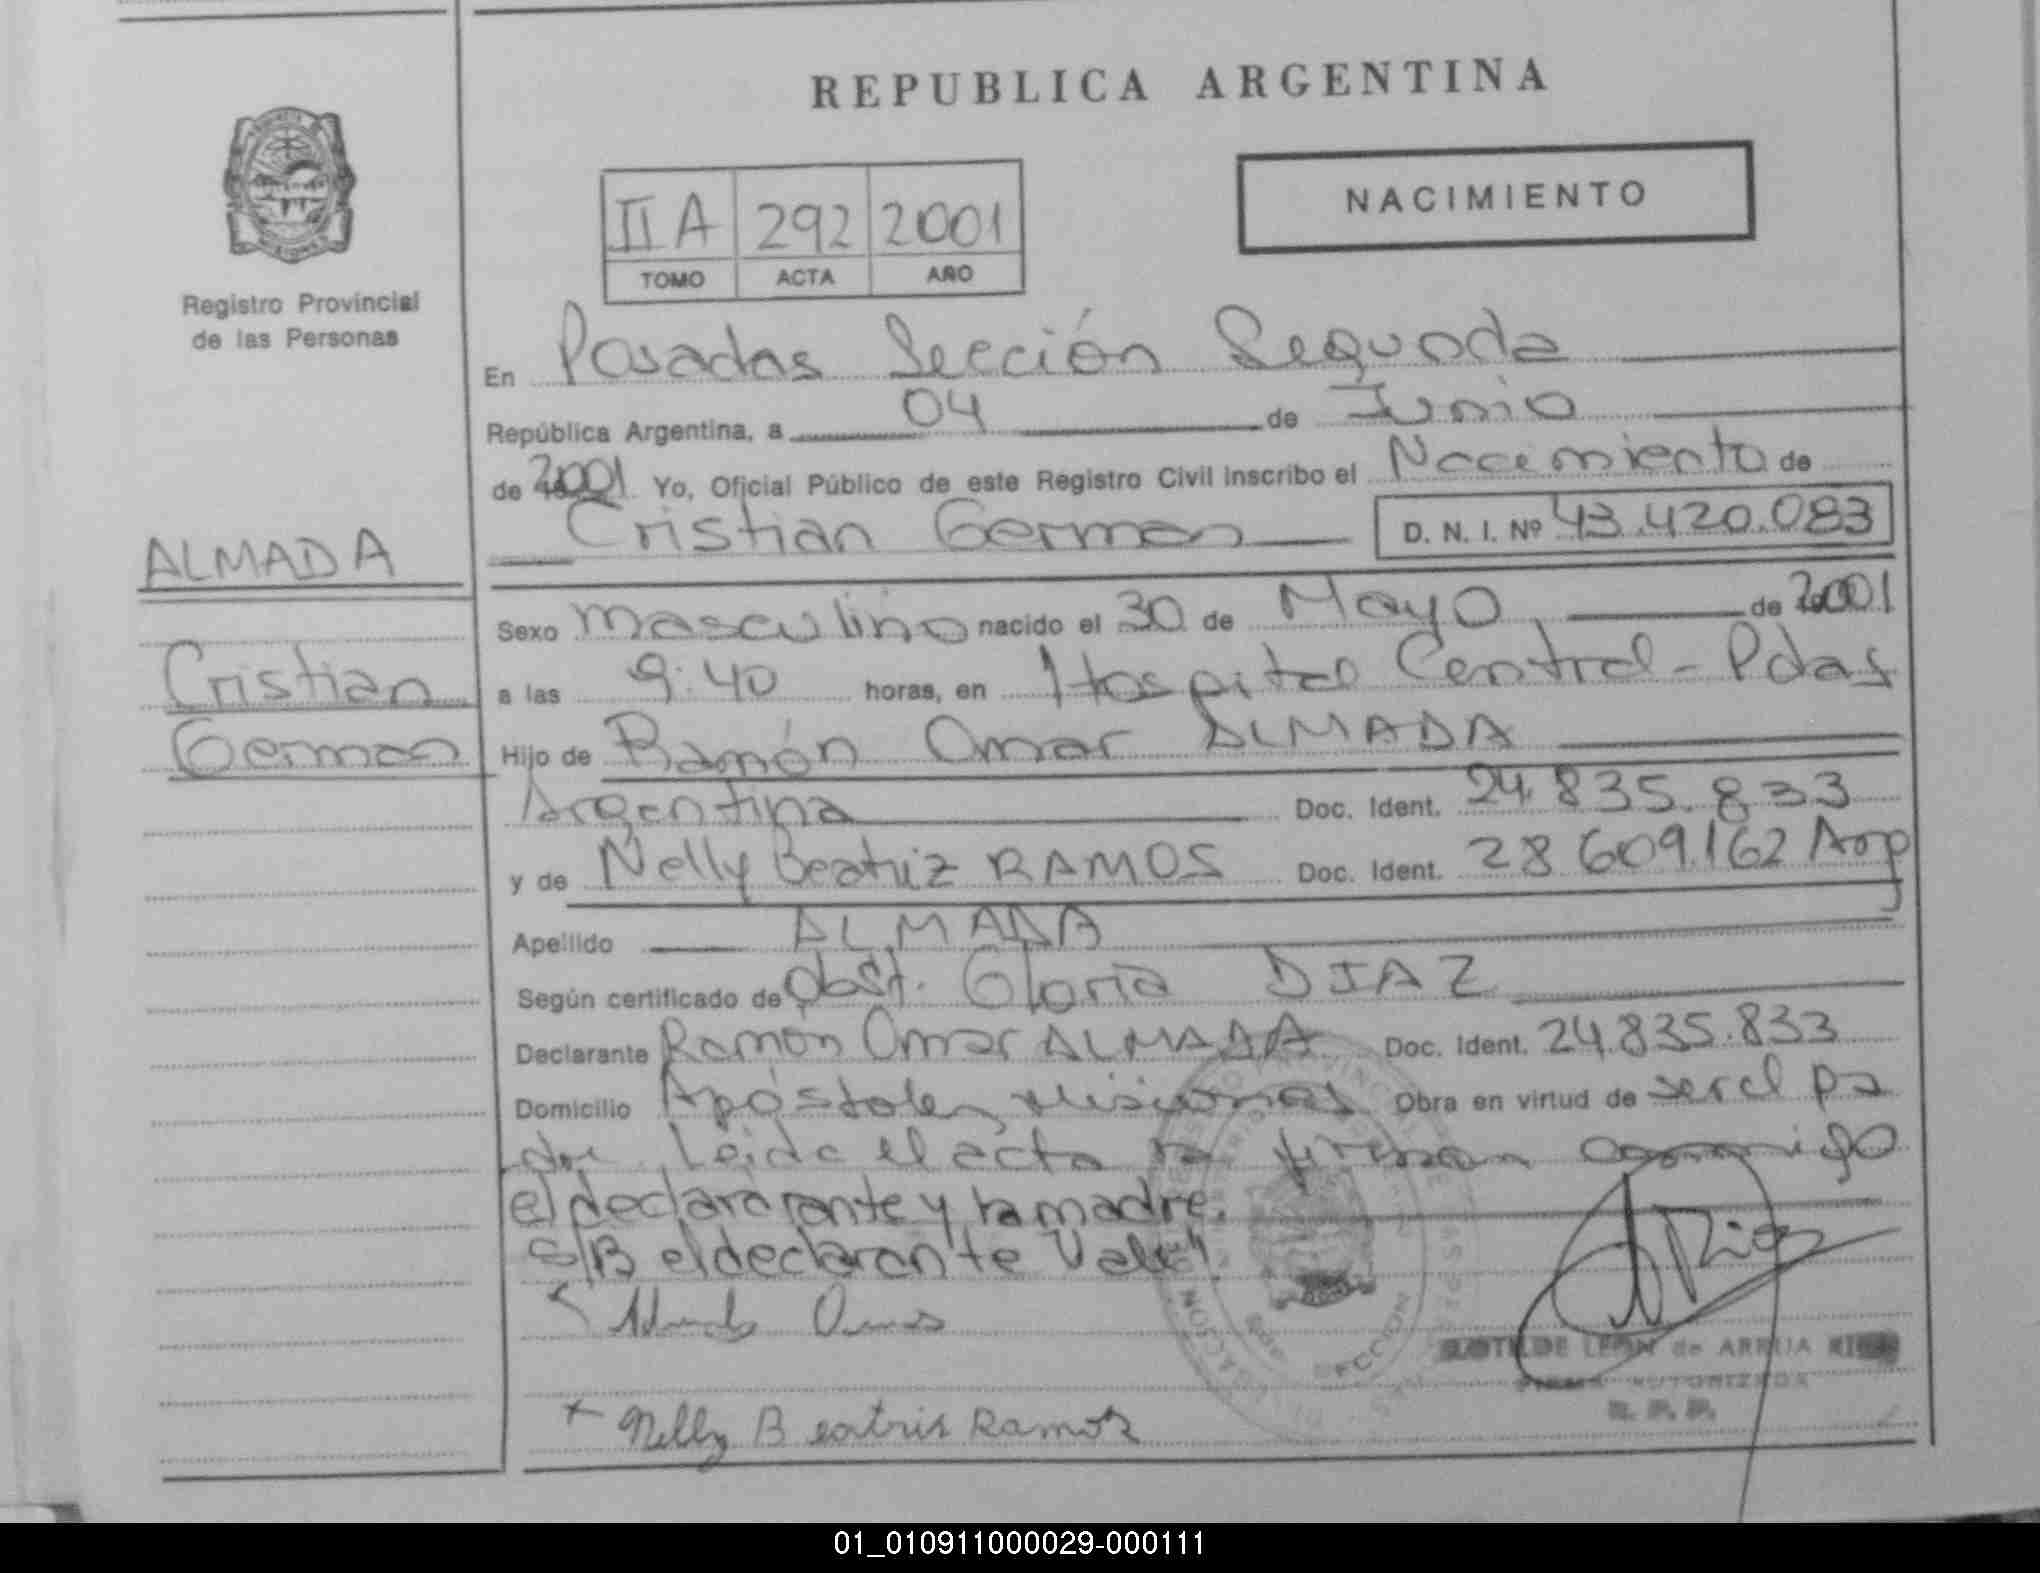 REPUBLICA ARGENTINA
NACIMIENTO
IIA 292 2001
TOMO ACTA AÑO
Registro Provincial
de las Personas
ALMADA
Cristian
German
En Posadas Sección Segunda
República Argentina, a 04 de Junio
de 2001 Yo, Oficial Público de este Registro Civil inscribo el Nacimiento de
Cristian German D. N. I. Nº 43.420.083
Sexo masculino nacido el 30 de Mayo de 2001
a las 9:40 horas, en Hospital Central - Pdas
Hijo de Ramón Omar ALMADA
Argentina Doc. Ident. 24.835.833
y de Nelly Beatriz RAMOS Doc. Ident. 28.609.162 Arg
Apellido ALMADA
Según certificado de Obst. Gloria DIAZ
Declarante Ramón Omar ALMADA Doc. Ident. 24.835.833
Domicilio Apóstoles, Misiones Obra en virtud de ser el pa
dre. Leida el acta la firman conmigo
el declararante y la madre.
S/B el declarante Vale
Almada Omar
x Nelly Beatris Ramos
LEON de ARRUA
FIRMA AUTORIZADA
R. P. P.
SECCION
01_010911000029-000111